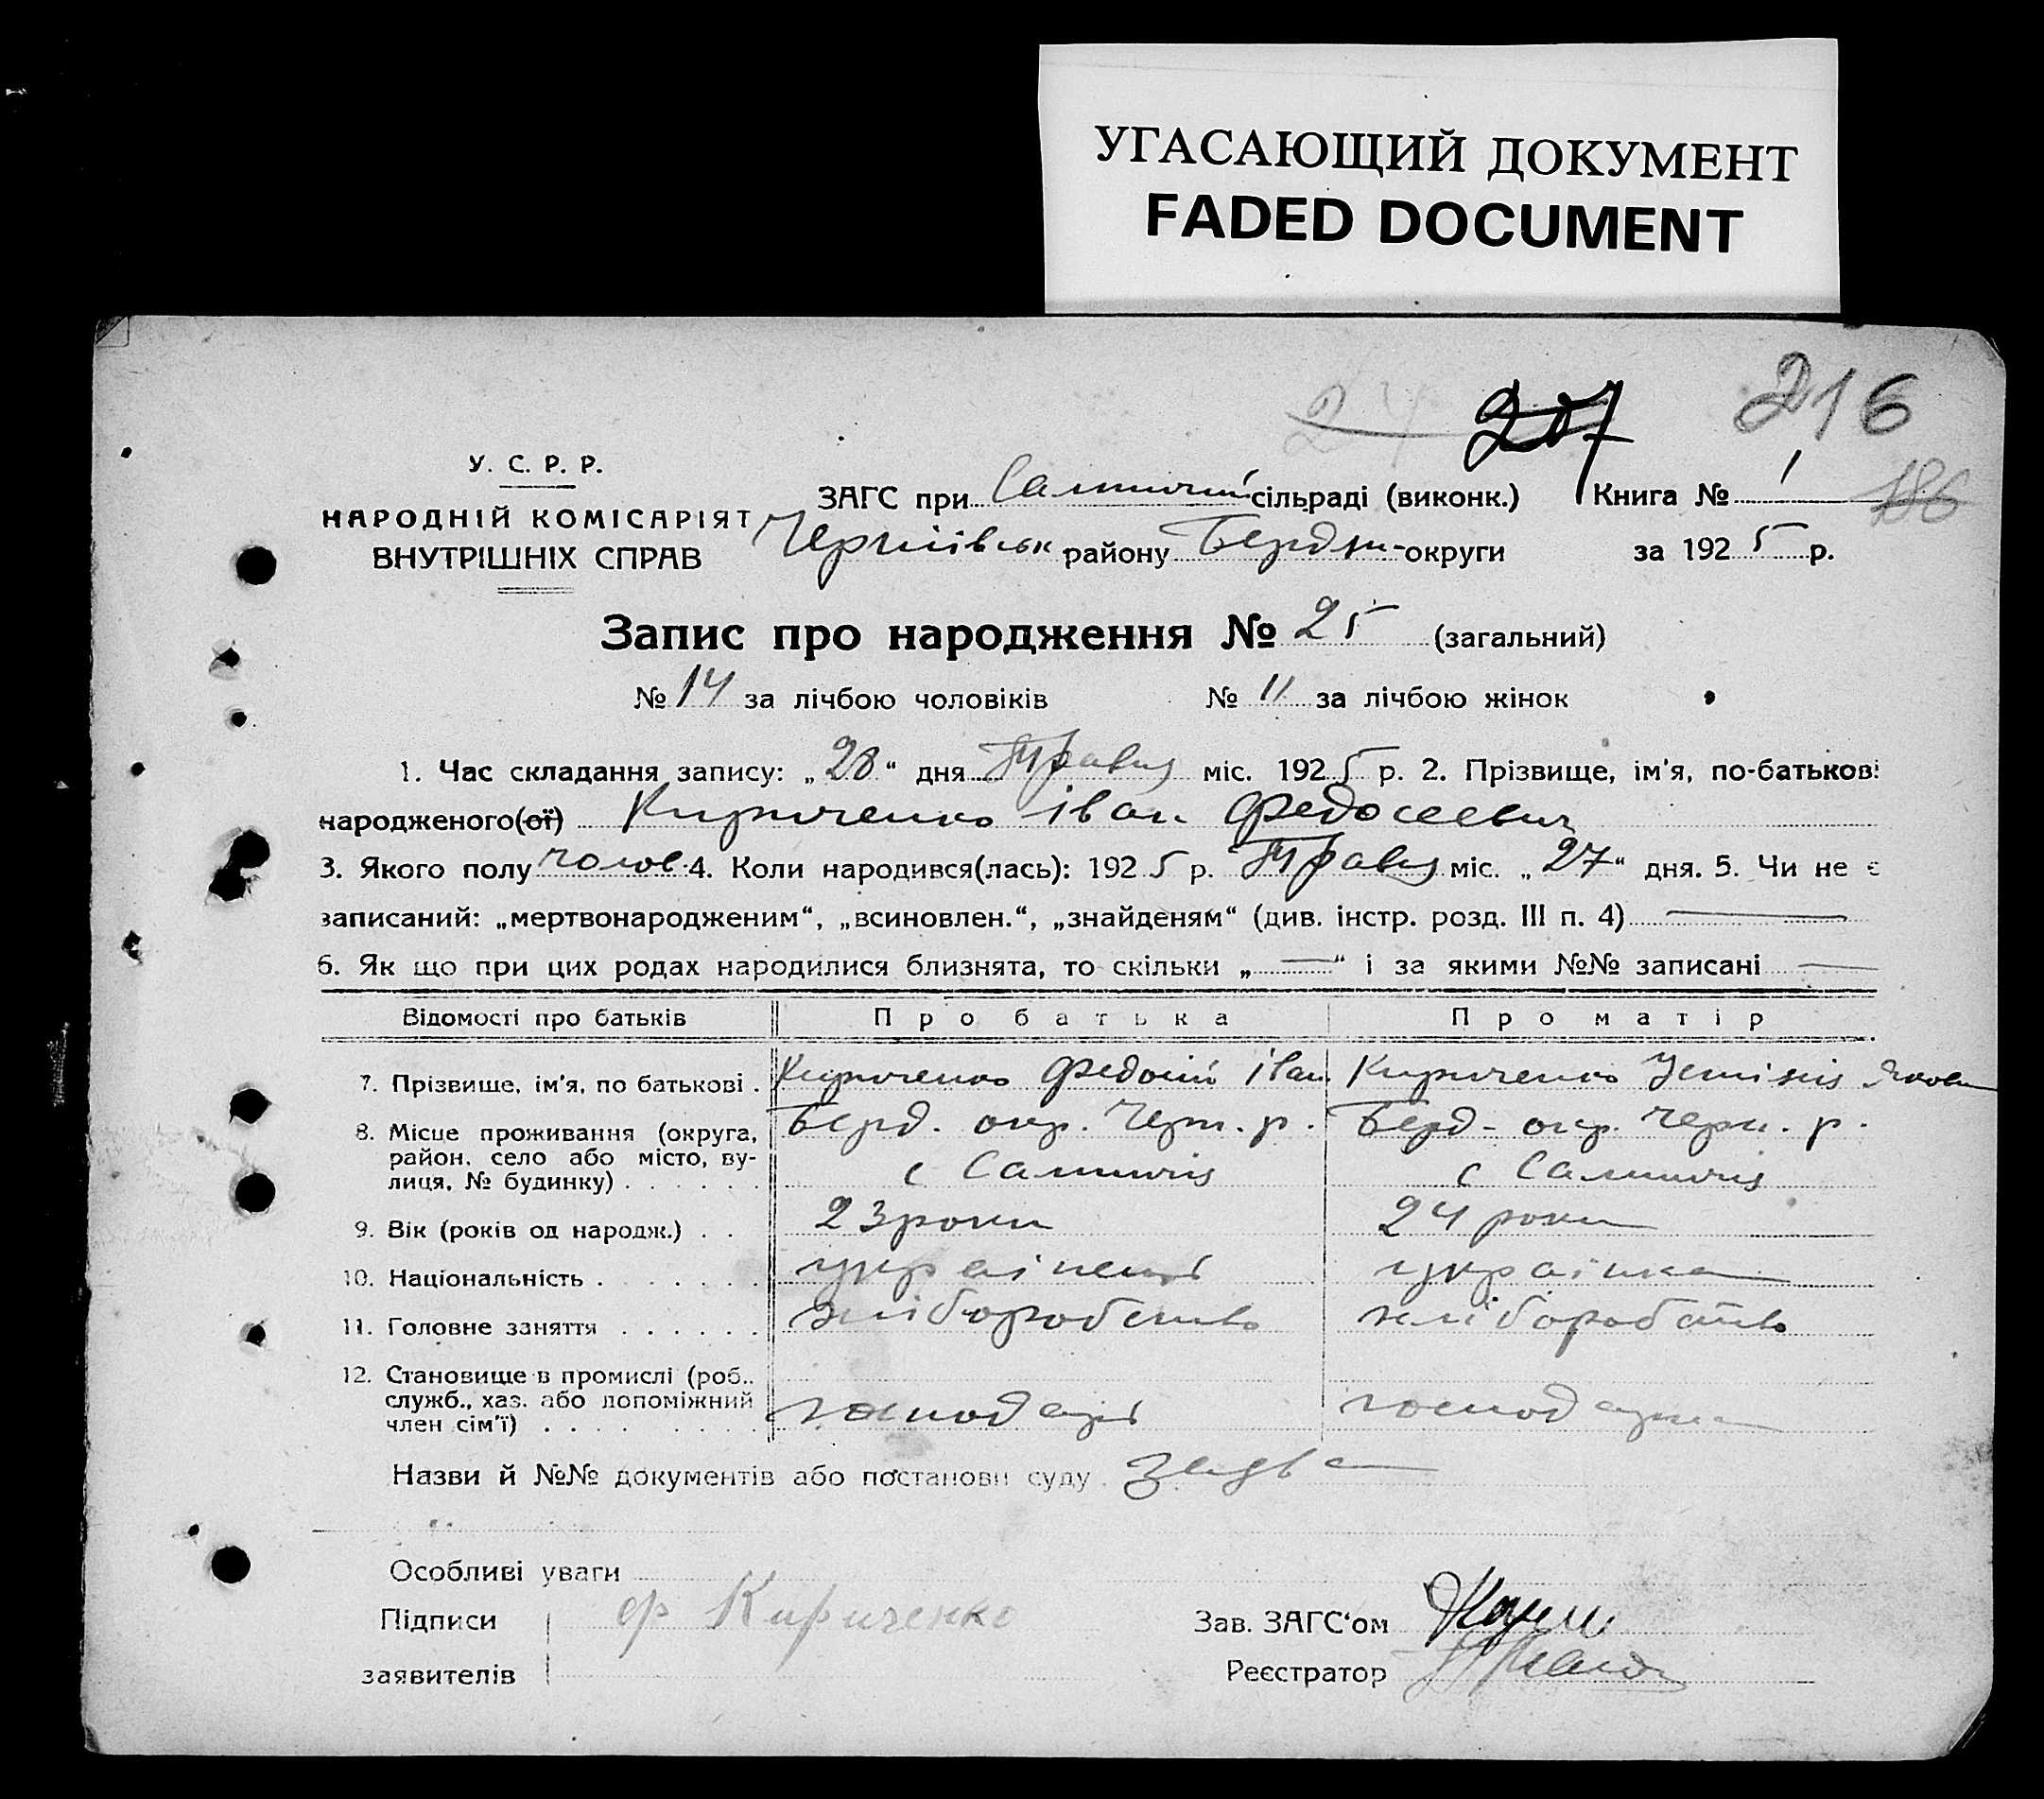 УГАСАЮЩИЙ ДОКУМЕНТ
FADED DOCUMENT
24 207 216
У. С. Р. Р.
НАРОДНІЙ КОМІСАРІЯТ
ВНУТРІШНІХ СПРАВ
ЗАГС при сільраді (виконк.) Книга № 1 186
району Бердян-округи за 1925 р.
Запис про народження № 25 (загальний)
№ 14 за лічбою чоловіків № 11 за лічбою жінок
1. Час складання запису: „28“ дня Травня міс. 1925 р. 2. Прізвище, ім'я, по-батькові
народженого(ої) Кириченко Іван Федосеевич
3. Якого полу чолов. 4. Коли народився(лась): 1925 р. Травня міс. „27“ дня. 5. Чи не є
записаний: „мертвонародженим“, „всиновлен.“, „знайденям“ (див. інстр. розд. III п. 4)
6. Як що при цих родах народилися близнята, то скільки „—“ і за якими №№ записані —
Відомості про батьків Про батька Про матір
7. Прізвище, ім'я, по батькові . Кириченко Федосій Іван. Кириченко Устінія Яковл
8. Місце проживання (округа,
район, село або місто, ву-
лиця, № будинку) . . . . . .
Берд. окр. Черн. р. Берд- окр. Черн. р.
с с
9. Вік (років од народж.) . . 23 роки 24 роки
10. Національність . . . . . . українець українка
11. Головне заняття . . . . . . хліборобство хліборобство
12. Становище в промислі (роб..
служб., хаз. або допоміжний
член сім'ї) . . . . . . . . господарь господарка
Назви й №№ документів або постанови суду . заява
Особливі уваги
Підписи Ф Кириченко Зав. ЗАГС'ом
заявителів Реєстратор